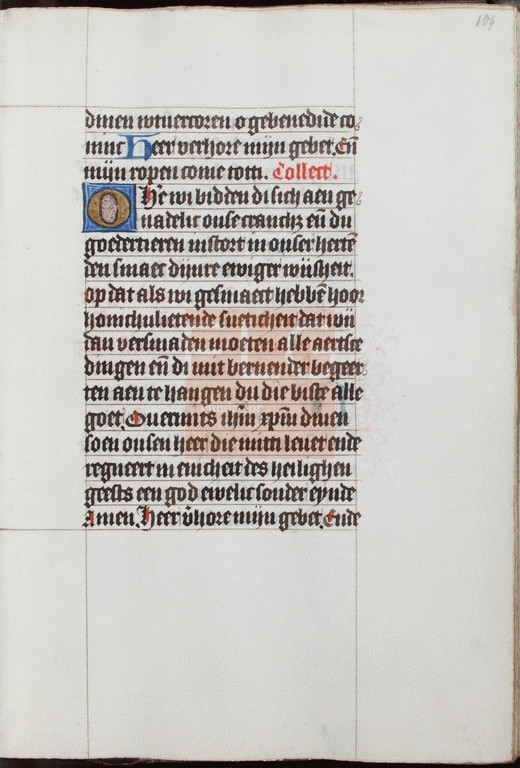 109
dinen wtuercoren o gebenedide co
mnic Heer verhore mijn gebet. Eñ
mijn ropen come totti. Collect.
O He wi bidden di sich aen ge
nadelic onse crancħz eñ du
goedertieren instort in onser hertē
den smaec dijnre ewiger wijsheit.
op dat als wi gesmaect hebbē
hoochulietende sueticheit dat wij
dan versmaden moeten alle aertsce
dingen eñ di mit bernender begeer
ten aen te hangen du die biste alle
goet. Ouermits ihm xpm dinen
soen onsen heer die mitti leuet ende
regneert in enicheit des heilighen
geests een god ewelic sonder eynde
Amen. Heer v̄hore mijn gebet. Ende